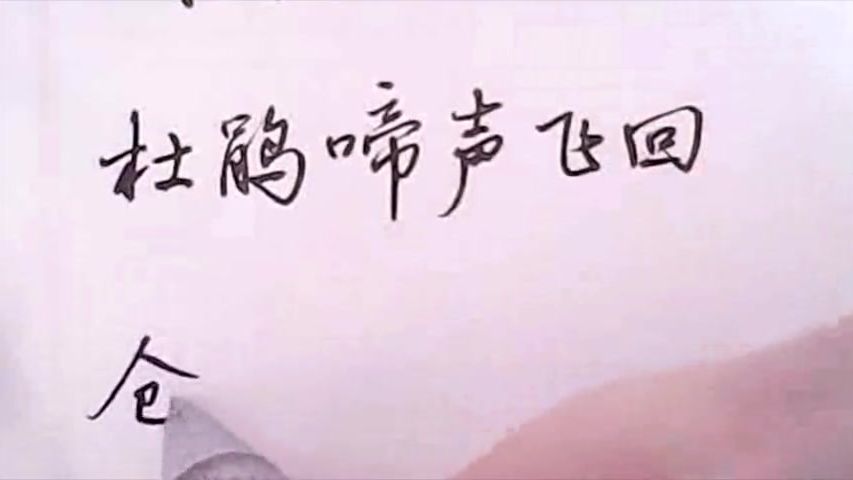 杜鹃啼声飞回
仓